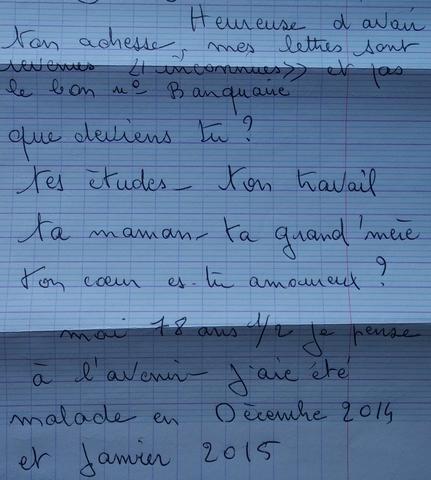 Heureuse d'avoir
ton adresse, mes lettres sont
revenues << inconnues >> et pas
le bon n° Banquaire
que deviens tu ?
tes études - ton travail
ta maman - ta grand'mère
ton cœur es-tu amoureux ?
moi 78 ans 1/2 je pense
à l'avenir - j'aie été
malade en Décembre 2014
et Janvier 2015